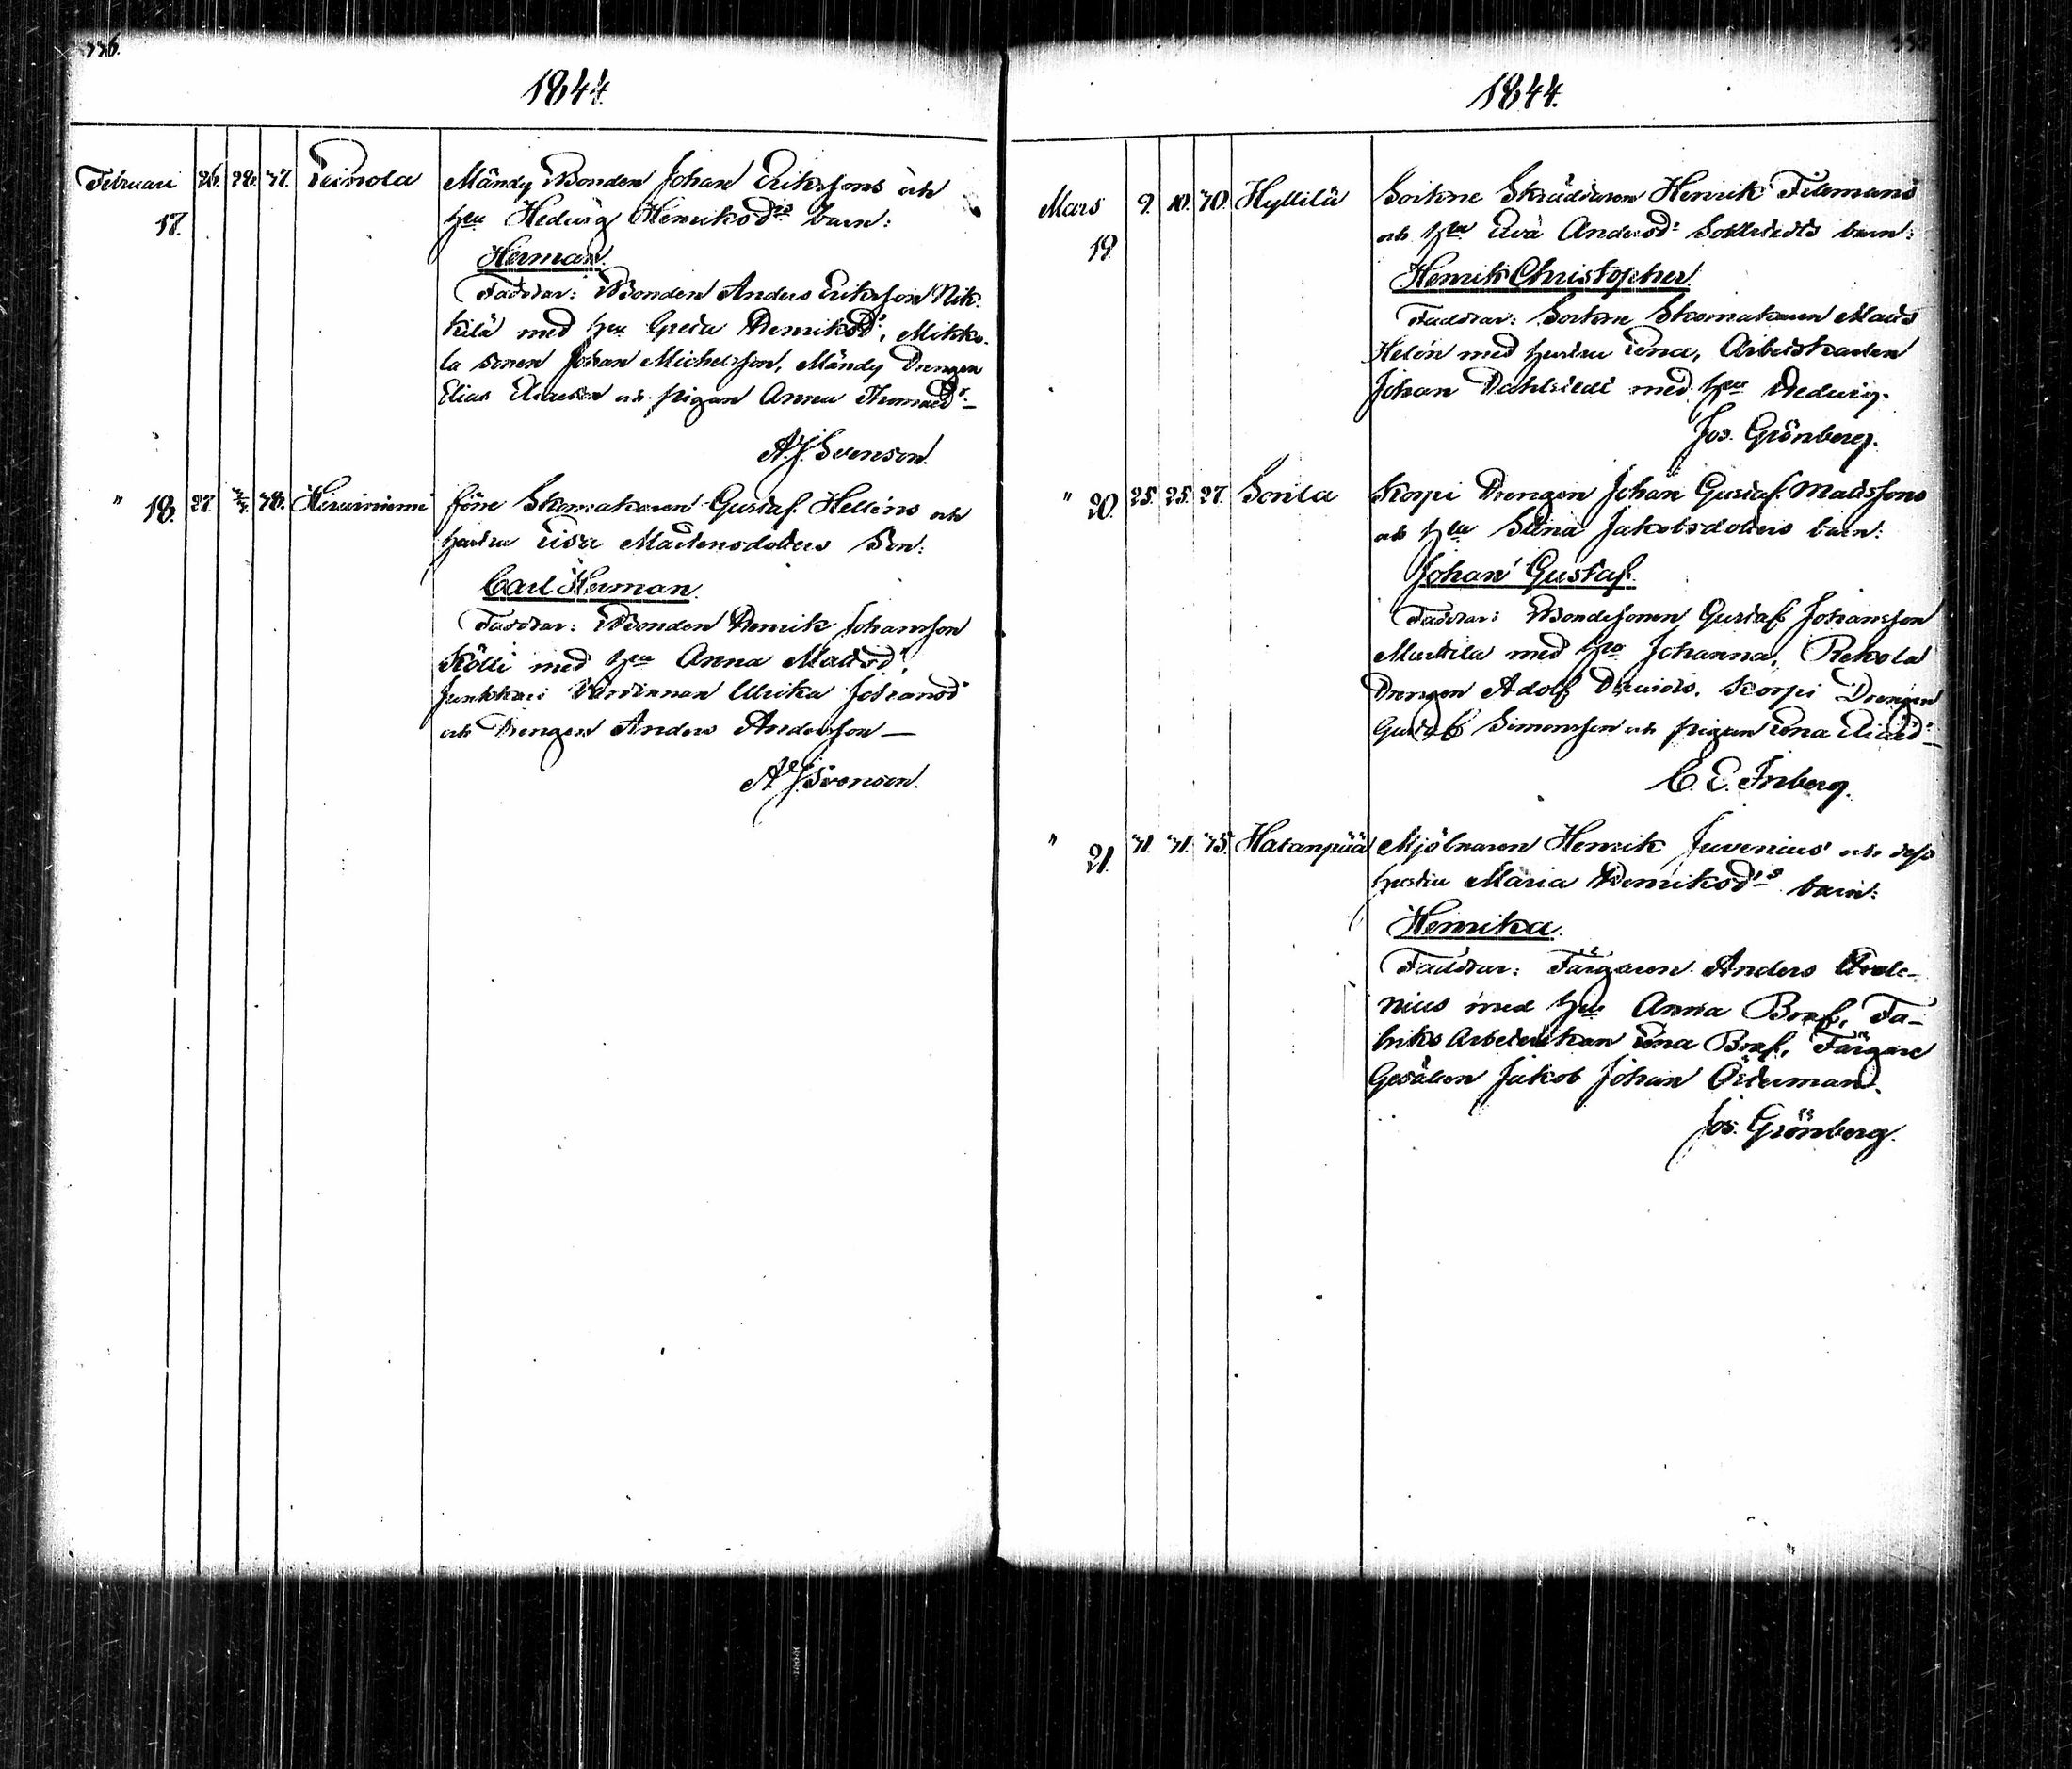 336.
1844.
Februari 26. 28. 47. Leinola Mändy Bonden Johan Eriksons och
17. hu Hedvig Henriksdrs barn:
Herman.
Faddrar: Bonden Anders Erikson Nik-
kilä med hu Greta Henriksdr, Mikko-
la sonen Johan Michelsson, Mändy Drengen
Elias Eliasson och pigan Anna Thomasdr
A. J. Svenson.
" 18. 27. 48. Hirviniemi före Skomakaren Gustaf Helléns och
hustru Lisa Mårtensdotters Son:
Carl Herman.
Faddrar: Bonden Henrik Johansson
Kölli med hu Anna Matsdr,
Junkkari Värdinnan Ulrika Johansdr
och Drengen Anders Andersson
A. J. Svenson.
1844.
Mars 9. 10. 40. Hyllilä Sockne Skräddaren Henrik Tilemans
19 och hu Eva Andersdr barn:
Henrik Christopher.
Faddrar: Sockne Skomakaren Mats
Helén med hustru Lena, Arbetskarlen
Johan Dahlstedt med hu Hedwig.
Jos. Grönberg.
" 20. 25. 25. 27. Sonla Korpi Drengen Johan Gustaf Matssons
och hu Stina Jakobsdotters barn:
Johan Gustaf.
Faddrar: Bondesonen Gustaf Johansson
Marttila med hu Johanna, Rekola
Drengen Adolf Davids. Korpi Drengen
Gustaf Simonsson och pigan Lena Eliaedr
C. E. Friberg.
" 21. 41. 41. 45. Hatanpää Mjölnaren Henrik Juvenius och dess
hustru Maria Henriksdrs barn:
Henrika.
Faddrar: Färgaren Anders
nius med hu Anna Boxf, Fa-
briks Arbeterskan Lena Boxf, Färgare
Gesällen Jakob Johan Österman.
Jos. Grönberg.